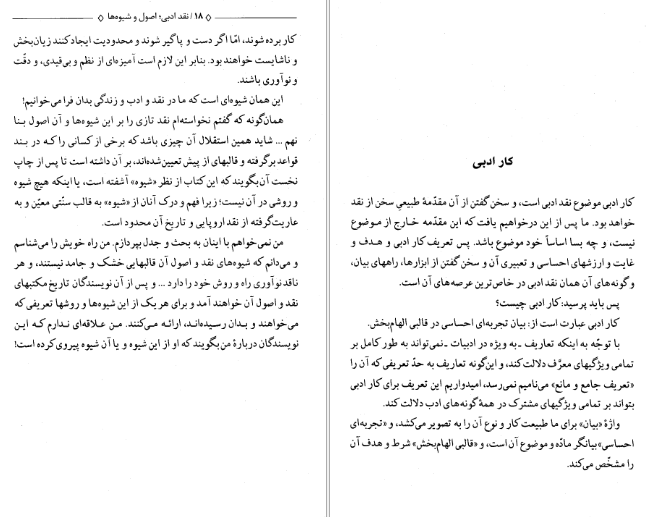 ۱۸ / نقد ادبی؛ اصول و شیوه‌ها
کار برده شوند، امّا اگر دست و پاگیر شوند و محدودیت ایجاد کنند زیان‌بخش
و ناشایست خواهند بود. بنابر این لازم است آمیزه‌ای از نظم و بی‌قیدی، و دقّت
و نوآوری باشند.
این همان شیوه‌ای است که ما در نقد و ادب و زندگی بدان فرا می‌خوانیم!
همان‌گونه که گفتم نخواسته‌ام نقد تازی را بر این شیوه‌ها و آن اصول بنا
نهم ... شاید همین استقلال آن چیزی باشد که برخی از کسانی را که در بند
قواعد برگرفته و قالبهای از پیش تعیین‌شده‌اند، بر آن داشته است تا پس از چاپ
نخست آن بگویند که این کتاب از نظر «شیوه» آشفته است، یا اینکه هیچ شیوه
و روشی در آن نیست؛ زیرا فهم و درک آنان از «شیوه» به قالب سنّتی معیّن و به
عاریت‌گرفته از نقد اروپایی و تاریخ آن محدود است.
من نمی‌خواهم با اینان به بحث و جدل بپردازم. من راه خویش را می‌شناسم
و می‌دانم که شیوه‌های نقد و اصول آن قالبهایی خشک و جامد نیستند، و هر
ناقد نوآوری راه و روش خود را دارد ... و پس از آن نویسندگان تاریخ مکتبهای
نقد و اصول آن خواهند آمد و برای هر یک از این شیوه‌ها و روشها تعریفی که
می‌خواهند و بدان رسیده‌اند، ارائه می‌کنند. من علاقه‌ای ندارم که این
نویسندگان دربارهٔ من بگویند که او از این شیوه و یا آن شیوه پیروی کرده است!
کار ادبی
کار ادبی موضوع نقد ادبی است، و سخن گفتن از آن مقدّمهٔ طبیعیِ سخن از نقد
خواهد بود. ما پس از این درخواهیم یافت که این مقدمه خارج از موضوع
نیست، و چه بسا اساساً خود موضوع باشد. پس تعریف کار ادبی و هدف و
غایت و ارزشهای احساسی و تعبیری آن و سخن گفتن از ابزارها، راههای بیان،
و گونه‌های آن همان نقد ادبی در خاص‌ترین عرصه‌های آن است.
پس باید پرسید: کار ادبی چیست؟
کار ادبی عبارت است از: بیان تجربه‌ای احساسی در قالبی الهام‌بخش.
با توجّه به اینکه تعاریف ـ به ویژه در ادبیات ـ نمی‌تواند به طور کامل بر
تمامی ویژگیهای معرَّف دلالت کند، و این‌گونه تعاریف به حدّ تعریفی که آن را
«تعریف جامع و مانع» می‌نامیم نمی‌رسد، امیدواریم این تعریف برای کار ادبی
بتواند بر تمامی ویژگیهای مشترک در همهٔ گونه‌های ادب دلالت کند.
واژهٔ «بیان» برای ما طبیعت کار و نوع آن را به تصویر می‌کشد، و «تجربه‌ای
احساسی» بیانگر مادّه و موضوع آن است، و «قالبی الهام‌بخش» شرط و هدف آن
را مشخّص می‌کند.